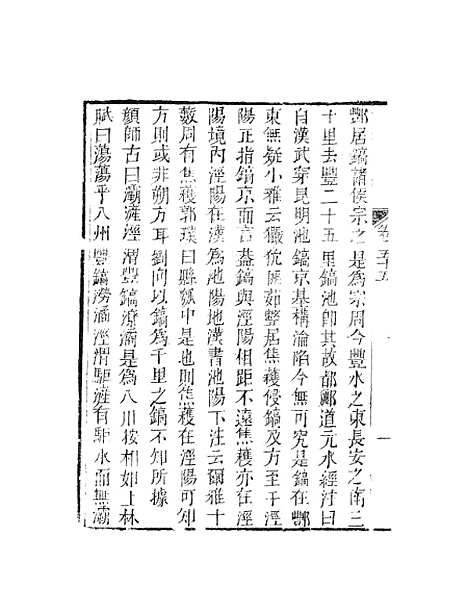 酆居鎬諸侯宗之是爲宗周今豐水之東長安之南三
十里去豐二十五里鎬池卽其故都酈道元水經注曰
自漢武穿昆明池鎬京基構淪陷今無可究是鎬在酆
東無疑小雅云玁狁匪茹整居焦穫侵鎬及方至于涇
陽正指鎬京而言蓋鎬與涇陽相距不遠焦穫亦在涇
陽境內涇陽在漢爲池陽地漢書池陽下注云爾雅十
藪周有焦穫郭璞曰縣瓠中是也則焦穫在涇陽可知
方則或非朔方耳劉向以鎬爲千里之鎬不知所據
顏師古曰灞滻涇渭豐鎬潦潏是爲八川按相如上林
賦曰蕩蕩乎八川豐鎬澇潏涇渭駈滻有駈水而無灞
卷五十五
一